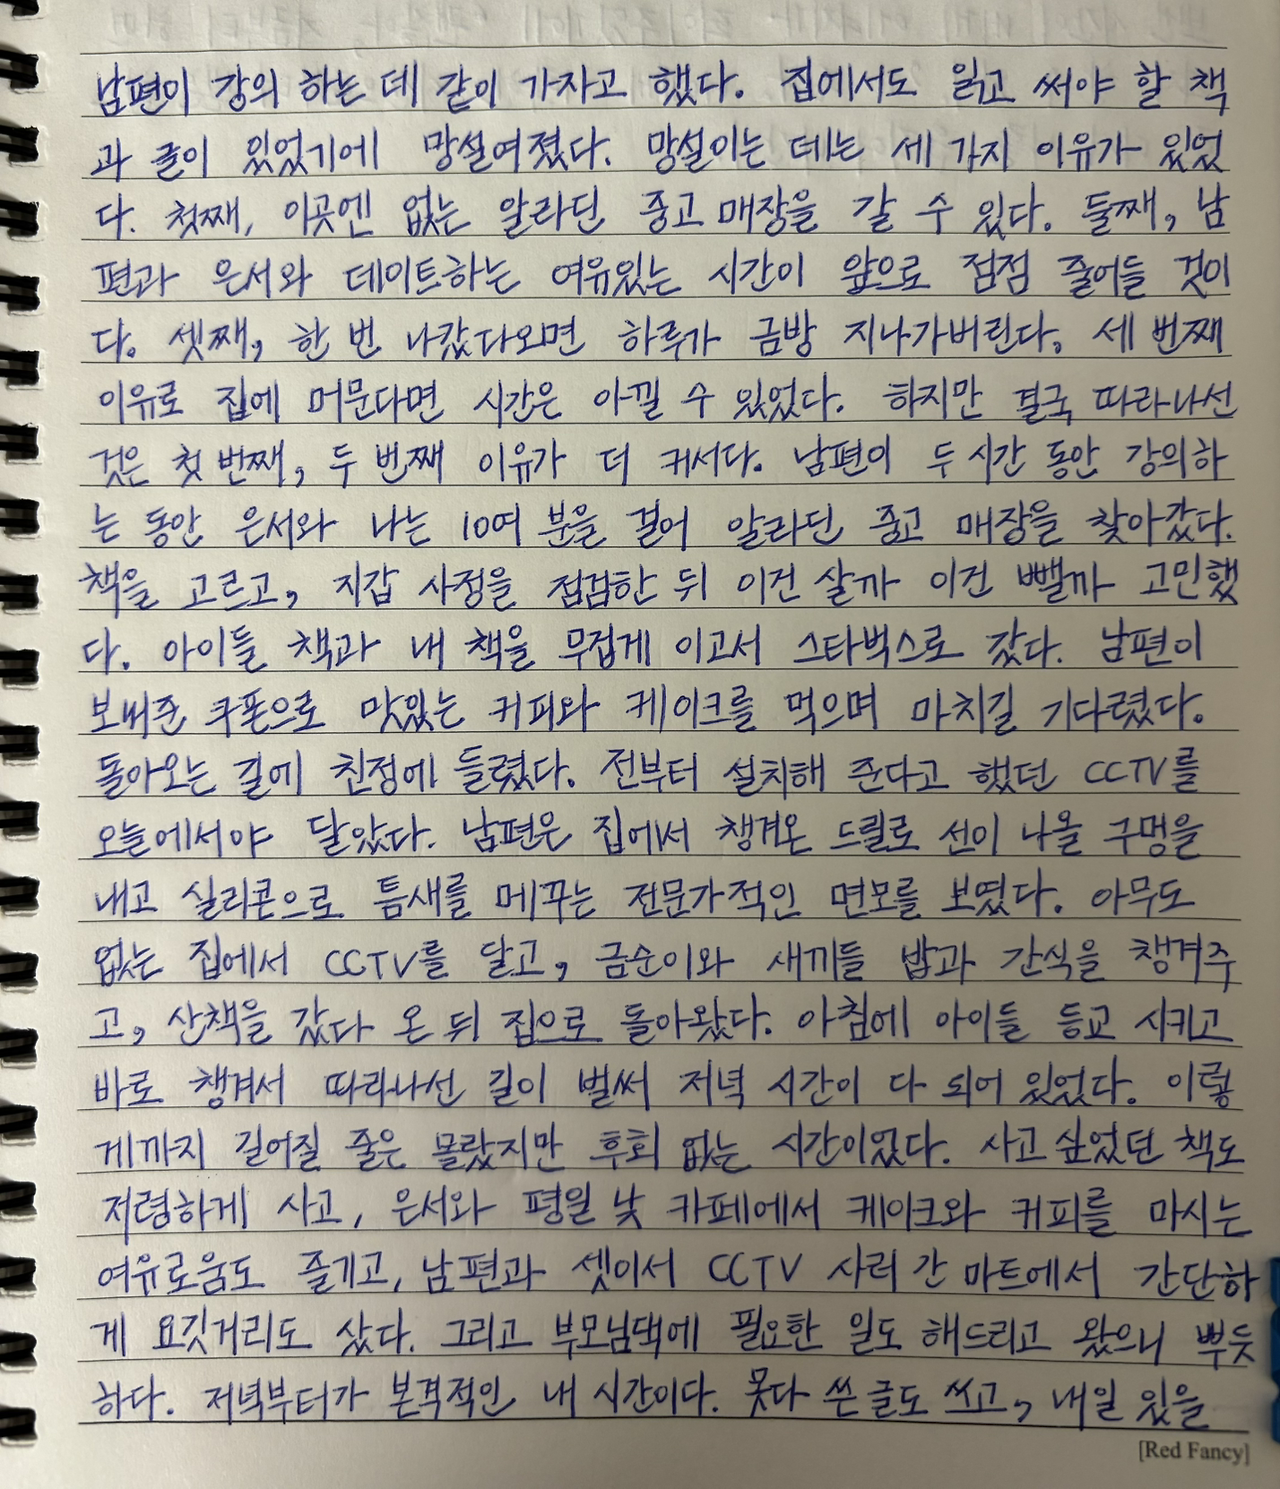 남편이 강의 하는 데 같이 가자고 했다. 집에서도 읽고 써야 할 책
과 글이 있었기에 망설여졌다. 망설이는 데는 세 가지 이유가 있었
다. 첫째, 이곳엔 없는 알라딘 중고 매장을 갈 수 있다. 둘째, 남
편과 은서와 데이트하는 여유있는 시간이 앞으로 점점 줄어들 것이
다. 셋째, 한 번 나갔다오면 하루가 금방 지나가버린다. 세 번째
이유로 집에 머문다면 시간은 아낄 수 있었다. 하지만 결국 따라나선
것은 첫 번째, 두 번째 이유가 더 커서다. 남편이 두 시간 동안 강의하
는 동안 은서와 나는 10여 분을 걸어 알라딘 중고 매장을 찾아갔다.
책을 고르고, 지갑 사정을 점검한 뒤 이건 살까 이건 뺄까 고민했
다. 아이들 책과 내 책을 무겁게 이고서 스타벅스로 갔다. 남편이
보내준 쿠폰으로 맛있는 커피와 케이크를 먹으며 마치길 기다렸다.
돌아오는 길에 친정에 들렸다. 전부터 설치해 준다고 했던 CCTV를
오늘에서야 달았다. 남편은 집에서 챙겨온 드릴로 선이 나올 구멍을
내고 실리콘으로 틈새를 메꾸는 전문가적인 면모를 보였다. 아무도
없는 집에서 CCTV를 달고, 금순이와 새끼들 밥과 간식을 챙겨주
고, 산책을 갔다 온 뒤 집으로 돌아왔다. 아침에 아이들 등교 시키고
바로 챙겨서 따라나선 길이 벌써 저녁 시간이 다 되어 있었다. 이렇
게까지 길어질 줄은 몰랐지만 후회 없는 시간이었다. 사고 싶었던 책도
저렴하게 사고, 은서와 평일 낮 카페에서 케이크와 커피를 마시는
여유로움도 즐기고, 남편과 셋이서 CCTV 사러 간 마트에서 간단하
게 요깃거리도 샀다. 그리고 부모님댁에 필요한 일도 해드리고 왔으니 뿌듯
하다. 저녁부터가 본격적인 내 시간이다. 못다 쓴 글도 쓰고, 내일 있을
[Red Fancy]